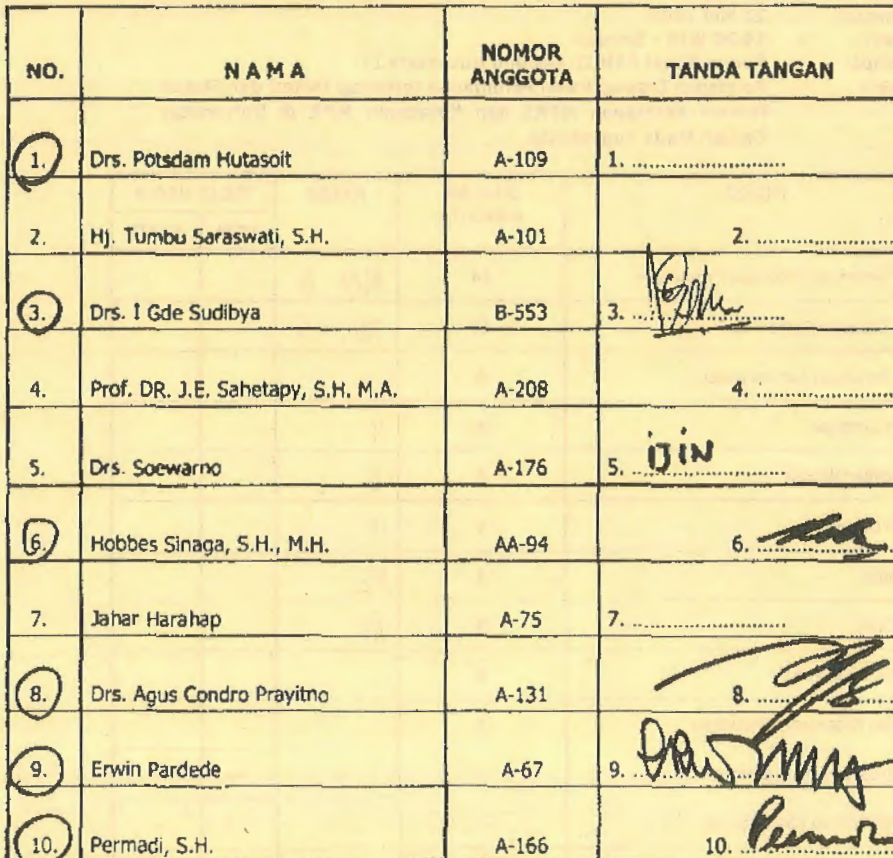 NO. NAMA NOMOR ANGGOTA TANDA TANGAN
1. Drs. Potsdam Hutasoit A-109 1. ........................
2. Hj. Tumbu Saraswati, S.H. A-101 2. ........................
3. Drs. I Gde Sudibya B-553 3. ........................
4. Prof. DR. J.E. Sahetapy, S.H. M.A. A-208 4. ........................
5. Drs. Soewarno A-176 5. ijin ........................
6. Hobbes Sinaga, S.H., M.H. AA-94 6. ........................
7. Jahar Harahap A-75 7. ........................
8. Drs. Agus Condro Prayitno A-131 8. ........................
9. Erwin Pardede A-67 9. ........................
10. Permadi, S.H. A-166 10. ........................